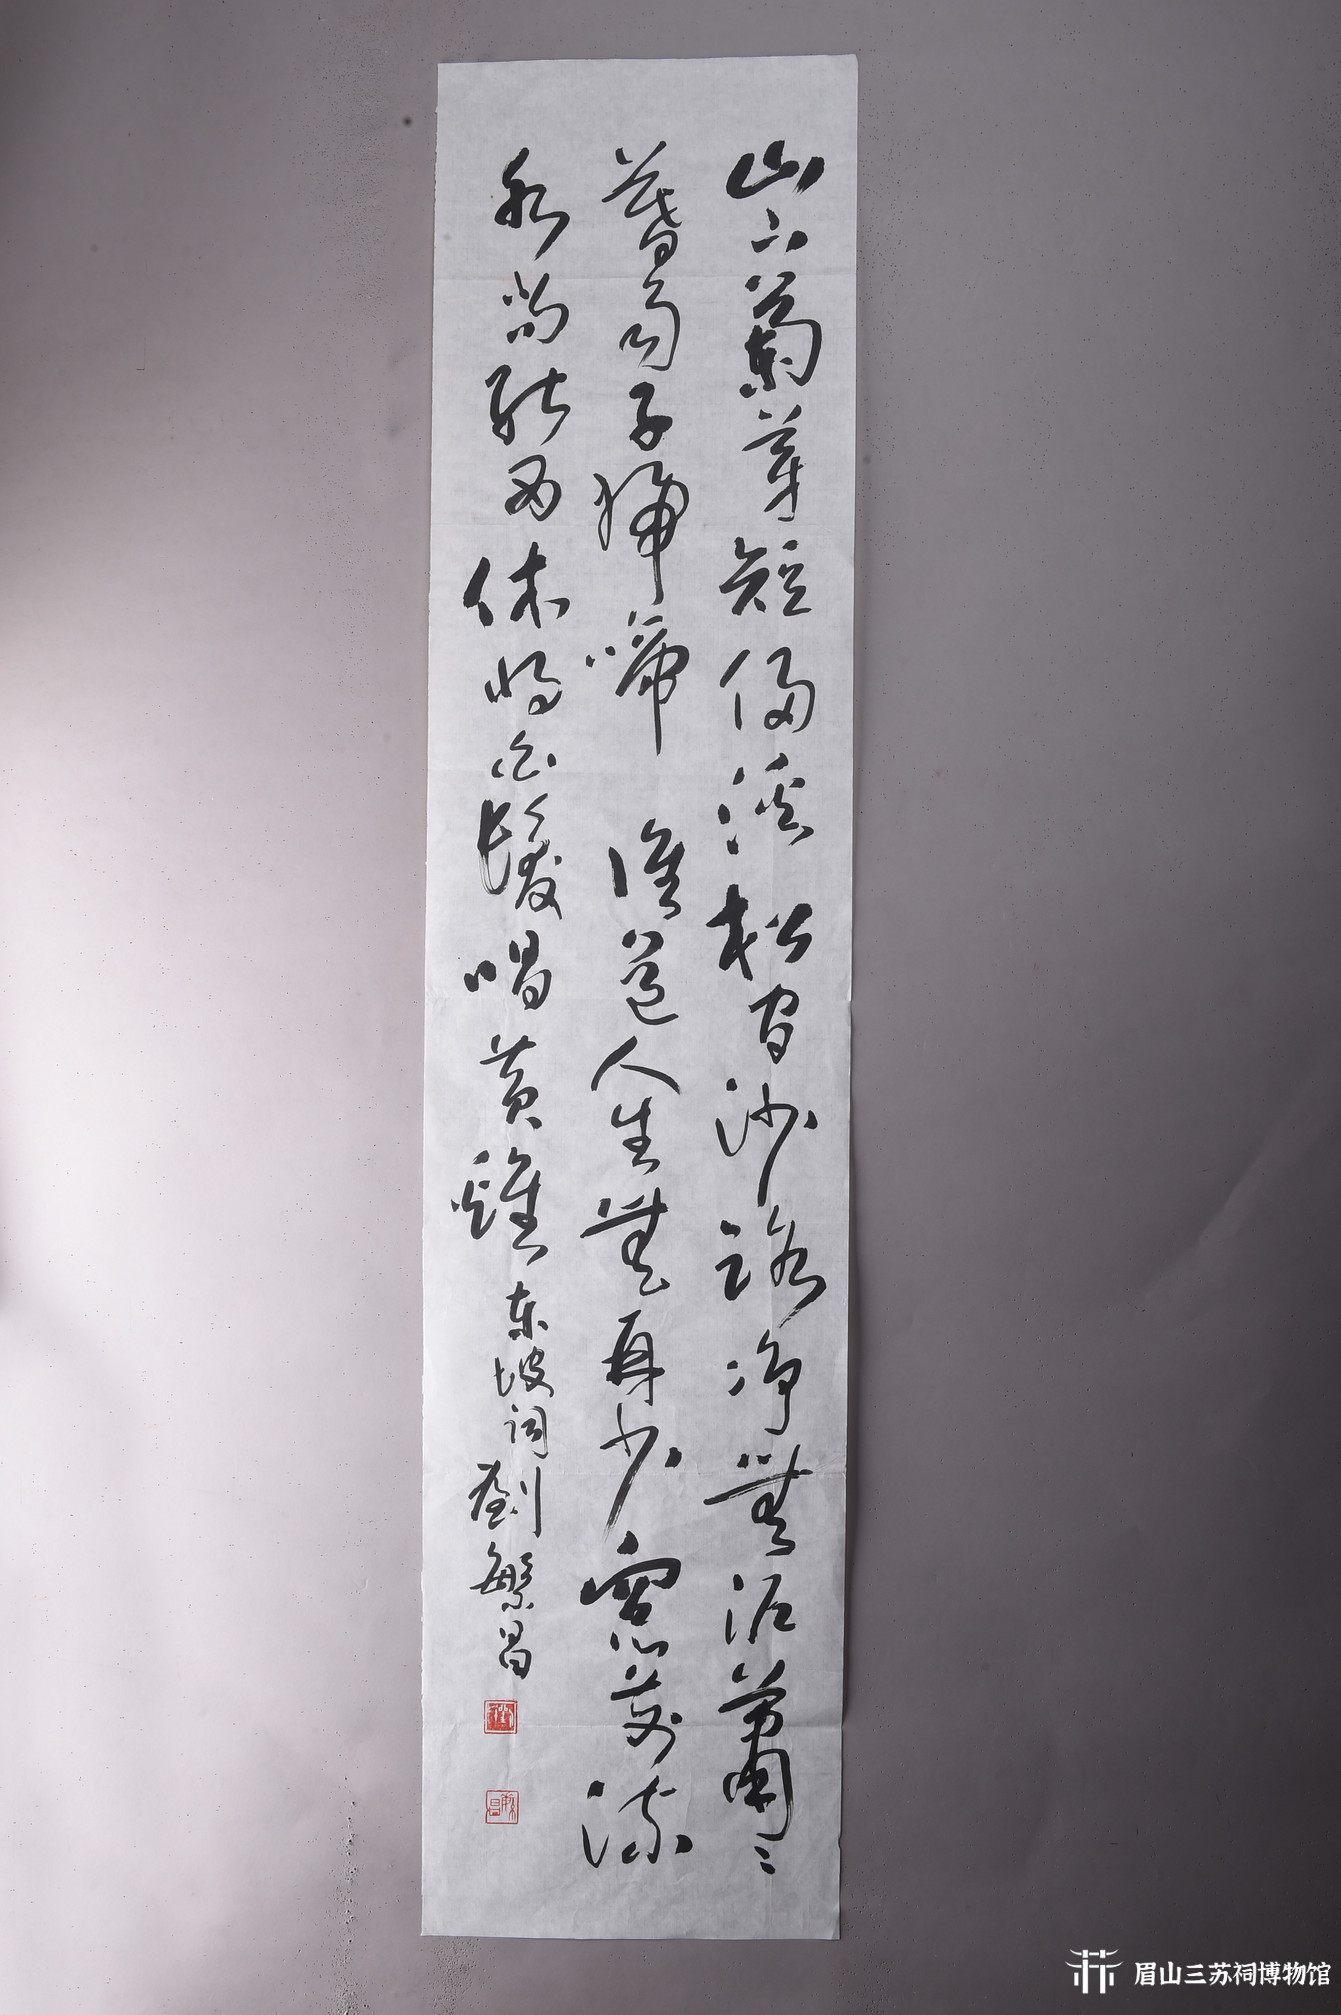 山下蘭芽短侵溪松間沙路淨無泥蕭〻
暮雨子規啼 誰道人生無再少窗前流
水尚能西休將白髮唱黃雞 东坡詞劉繁昌
繁昌
眉山三苏祠博物馆